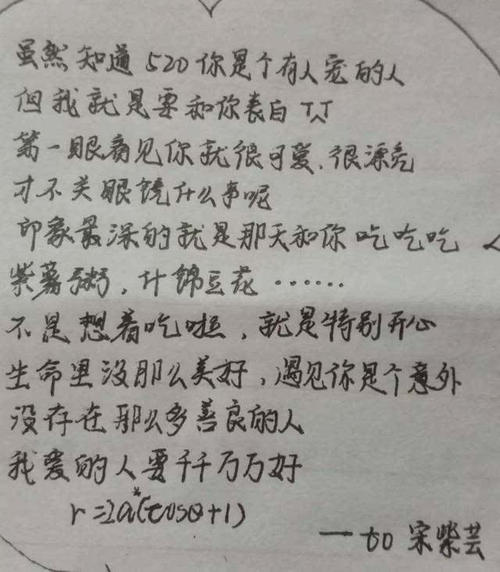 虽然知道520你是个有人宠的人
但我就是要和你表白TAT
第一眼看见你就很可爱.很漂亮
才不关眼镜什么事呢
印象最深的就是那天和你吃吃吃
紫薯粥,什锦豆花……
不是想着吃啦,就是特别开心
生命里没那么美好,遇见你是个意外
没存在那么多善良的人
我爱的人要千千万万好
r=2a*(cosθ+1)
——to 宋紫芸